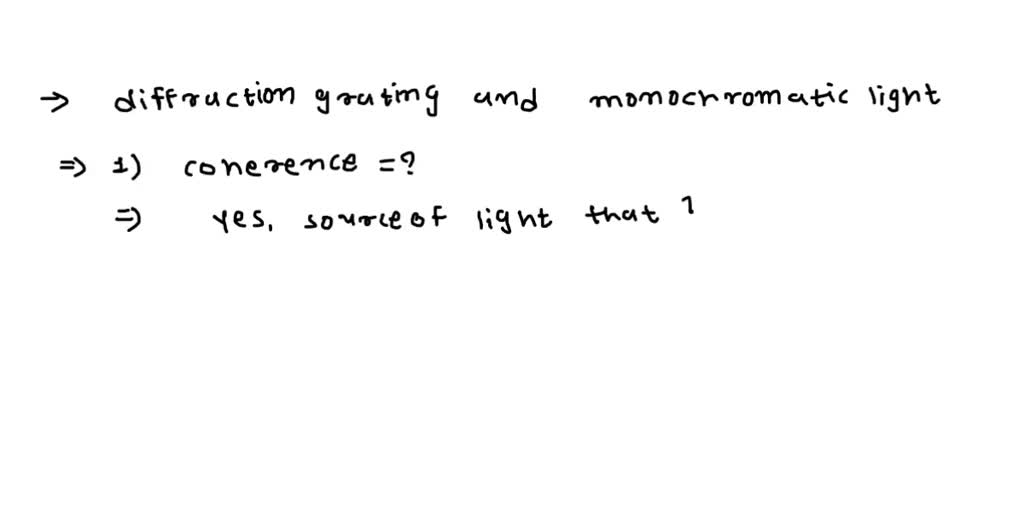 → diffraction grating and monochromatic light
⇒ 1) coherence = ?
⇒ yes, source of light that